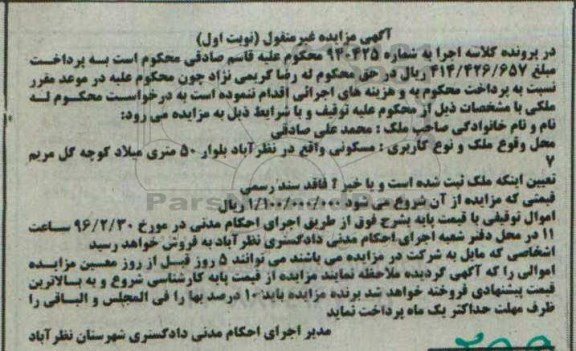 آگهی مزایده غیرمنقول (نوبت اول)
در پرونده کلاسه اجرا به شماره ۹۴۰۴۲۵ محکوم علیه قاسم صادقی محکوم است به پرداخت
مبلغ ۴۱۴/۴۲۶/۶۵۷ ریال در حق محکوم له رضا کریمی نژاد چون محکوم علیه در موعد مقرر
نسبت به پرداخت محکوم به و هزینه های اجرائی اقدام ننموده است به درخواست محکوم له
ملکی با مشخصات ذیل از محکوم علیه توقیف و با شرایط ذیل به مزایده می رود:
نام و نام خانوادگی صاحب ملک : محمد علی صادقی
محل وقوع ملک و نوع کاربری : مسکونی واقع در نظرآباد بلوار ۵۰ متری میلاد کوچه گل مریم
۷
تعیین اینکه ملک ثبت شده است و یا خیر ؟ فاقد سند رسمی
قیمتی که مزایده از آن شروع می شود ۱/۱۰۰/۰۰۰/۰۰۰ ریال
اموال توقیفی با قیمت پایه بشرح فوق از طریق اجرای احکام مدنی در مورخ ۹۶/۲/۳۰ ساعت
۱۱ در محل دفتر شعبه اجرای احکام مدنی دادگستری نظرآباد به فروش خواهد رسید
اشخاصی که مایل به شرکت در مزایده می باشند می توانند ۵ روز قبل از روز معین مزایده
اموالی را که آگهی گردیده ملاحظه نمایند مزایده از قیمت پایه کارشناسی شروع و به بالاترین
قیمت پیشنهادی فروخته خواهد شد برنده مزایده باید ۱۰ درصد بها را فی المجلس و الباقی را
ظرف مهلت حداکثر یک ماه پرداخت نماید
مدیر اجرای احکام مدنی دادگستری شهرستان نظرآباد